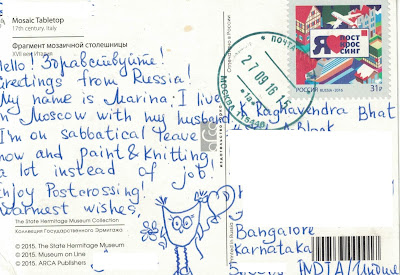 Mosaic Tabletop
17th century, Italy
Фрагмент мозаичной столешницы
XVII век, Италия
Hello! Здравствуйте!
Greetings from Russia!
My name is Marina. I live
in Moscow with my husband
I'm on sabbatical leave
now and paint & knitting
a lot instead of job.
Enjoy Postcrossing!
Warmest wishes,
The State Hermitage Museum Collection
Коллекция Государственного Эрмитажа
© 2015. The State Hermitage Museum
© 2015. Museum on Line
© 2015. ARCA Publishers
ПОЧТА
27 09 16 15
МОСКВА 115446
Я ПОСТ
КРОС
СИНГ
РОССИЯ RUSSIA · 2015 31₽
Raghavendra Bhat
Bangalore
Karnataka
INDIA/Индия